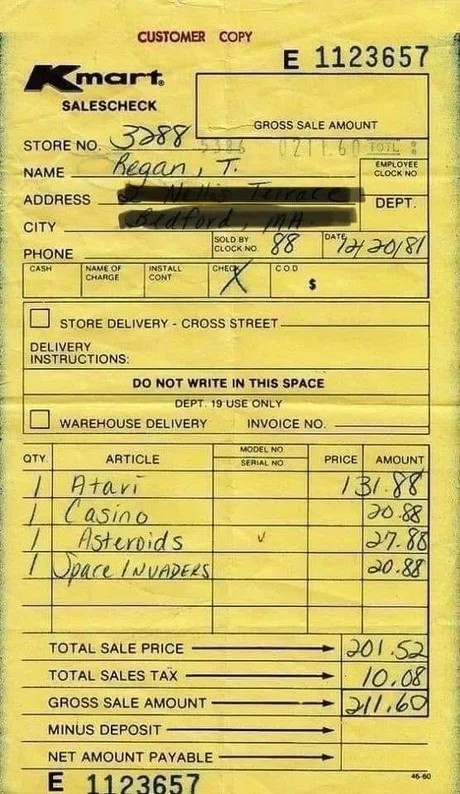 CUSTOMER COPY
E 1123657
Kmart
SALESCHECK
GROSS SALE AMOUNT
STORE NO. 3288
0211.60 TOTL
NAME Regan, T.
EMPLOYEE CLOCK NO
ADDRESS
DEPT.
CITY
PHONE
SOLD BY CLOCK NO. 88
DATE 12/20/81
CASH NAME OF CHARGE INSTALL CONT CHECK X C.O.D $
STORE DELIVERY - CROSS STREET
DELIVERY
INSTRUCTIONS:
DO NOT WRITE IN THIS SPACE
DEPT. 19 USE ONLY
WAREHOUSE DELIVERY INVOICE NO.
QTY. ARTICLE MODEL NO SERIAL NO PRICE AMOUNT
1 Atari 131.88
1 Casino 20.88
1 Asteroids 27.88
1 Space INVADERS 20.88
TOTAL SALE PRICE 201.52
TOTAL SALES TAX 10.08
GROSS SALE AMOUNT 211.60
MINUS DEPOSIT
NET AMOUNT PAYABLE
E 1123657
46-60